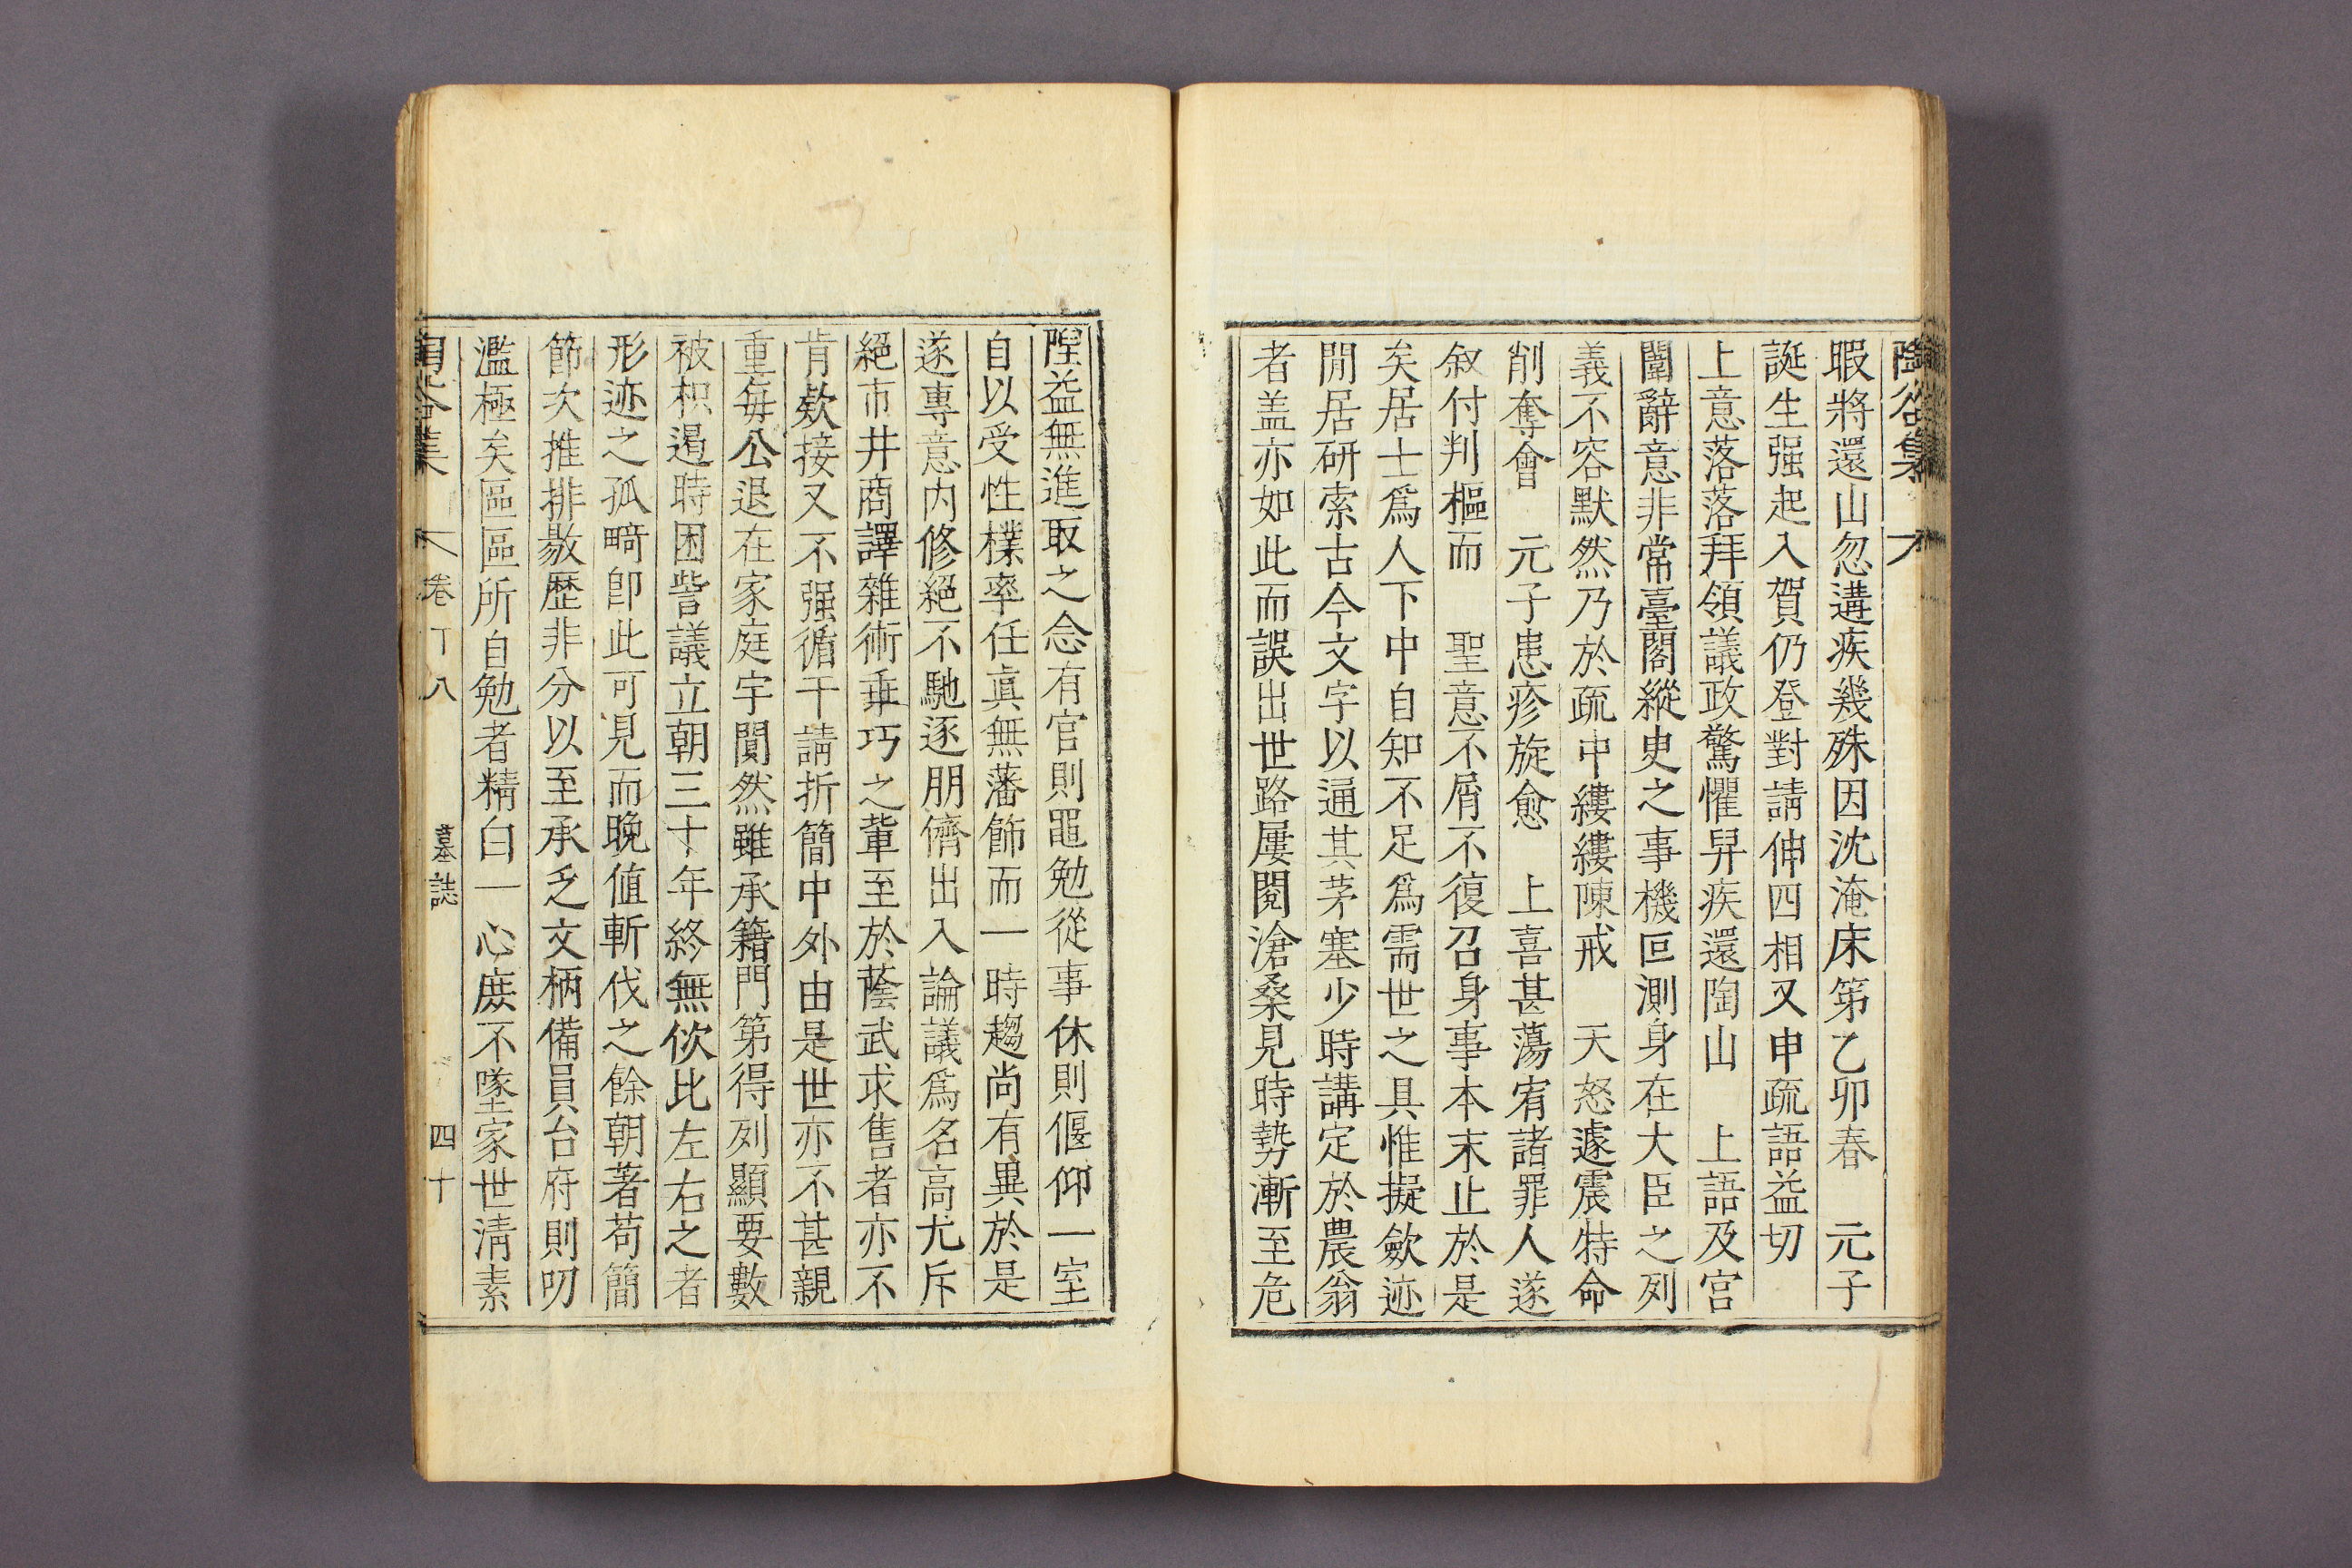 陶谷集
暇將還山忽遘疾幾殊因沈淹床笫乙卯春　元子
誕生强起入賀仍登對請伸四相又申疏語益切
上意落落拜領議政驚懼舁疾還陶山　上語及宫
闈辭意非常臺閣縱臾之事機叵測身在大臣之列
義不容默然乃於疏中縷縷陳戒　天怒遽震特命
削奪會　元子患疹旋愈　上喜甚蕩宥諸罪人遂
叙付判樞而　聖意不屑不復召身事本末止於是
矣居士爲人下中自知不足爲需世之具惟擬歛迹
閒居研索古今文字以通其茅塞少時講定於農翁
者盖亦如此而誤出世路屢閱滄桑見時勢漸至危
隉益無進取之念有官則黽勉從事休則偃仰一室
自以受性樸率任眞無藩飾而一時趨尚有異於是
遂專意内修絕不馳逐朋儕出入論議爲名高尤斥
絕市井商譯雜術垂巧之輩至於蔭武求售者亦不
肯欵接又不强循干請折簡中外由是世亦不甚親
重每公退在家庭宇閴然雖承籍門第得列顯要數
被枳遏時困訾議立朝三十年終無佽比左右之者
形迹之孤畸卽此可見而晚値斬伐之餘朝著苟簡
節次推排敭歷非分以至承乏文柄備員台府則叨
濫極矣區區所自勉者精白一心庶不墜家世清素
谷集　卷　八　墓誌　四十